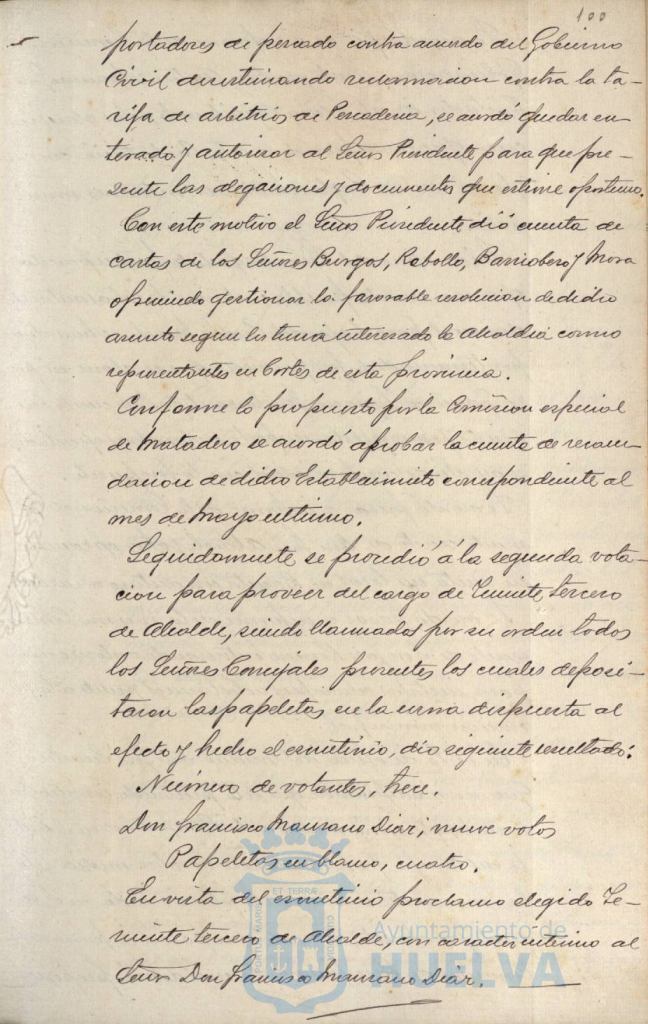 100
portadores de pescado contra acuerdo del Gobierno
Civil desestimando reclamacion contra la ta-
rifa de arbitrios de Pescaderia, se acordó quedar en-
terado y autorizar al Señor Presidente para que pre-
sente las alegaciones y documentos que estime oportuno.
Con este motivo el Señor Presidente dió cuenta de
cartas de los Señores Burgos, Rebollo, Barriobero y Mora
ofreciendo gestionar la favorable resolucion de dicho
asunto segun les tenia interesado la Alcaldia como
representantes en Cortes de esta provincia.
Conforme lo propuesto por la Comision especial
de Matadero se acordó aprobar la cuenta de recau-
dacion de dicho Establecimiento correspondiente al
mes de Mayo ultimo.
Seguidamente se procedió á la segunda vota-
cion para proveer del cargo de Teniente tercero
de Alcalde, siendo llamados por su orden todos
los Señores Concejales presentes los cuales deposi-
taron las papeletas en la urna dispuesta al
efecto y hecho el escrutinio, dio siguiente resultado:
Número de votantes, trece.
Don Francisco Manzano Diaz; nueve votos
Papeletas en blanco, cuatro.
En vista del escrutinio proclamo elegido Te-
niente tercero de Alcalde, con caracter interino al
Señor Don Francisco Manzano Diaz.
Ayuntamiento de
HUELVA